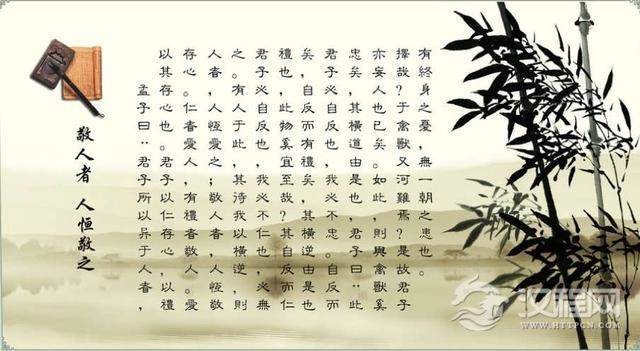 敬人者 人恒敬之
孟子曰：君子所以异于人者，
以其存心也。君子以仁存心，以禮
存心。仁者愛人，有禮者敬人。愛
人者，人恆愛之；敬人者，人恆敬
之。有人于此，其待我以橫逆，則
君子必自反也，我必不仁也，必無
禮也，此物奚宜至哉？其自反而仁
矣，自反而有禮矣，其橫逆由是也
君子必自反也，我必不忠。自反而
忠矣，其橫道由是也，君子曰：此
亦妄人也已矣。如此，則與禽獸奚
擇哉？于禽獸又河難焉？是故君子
有終身之憂，無一朝之患也。
汉程网
WWW.HTTPCN.COM